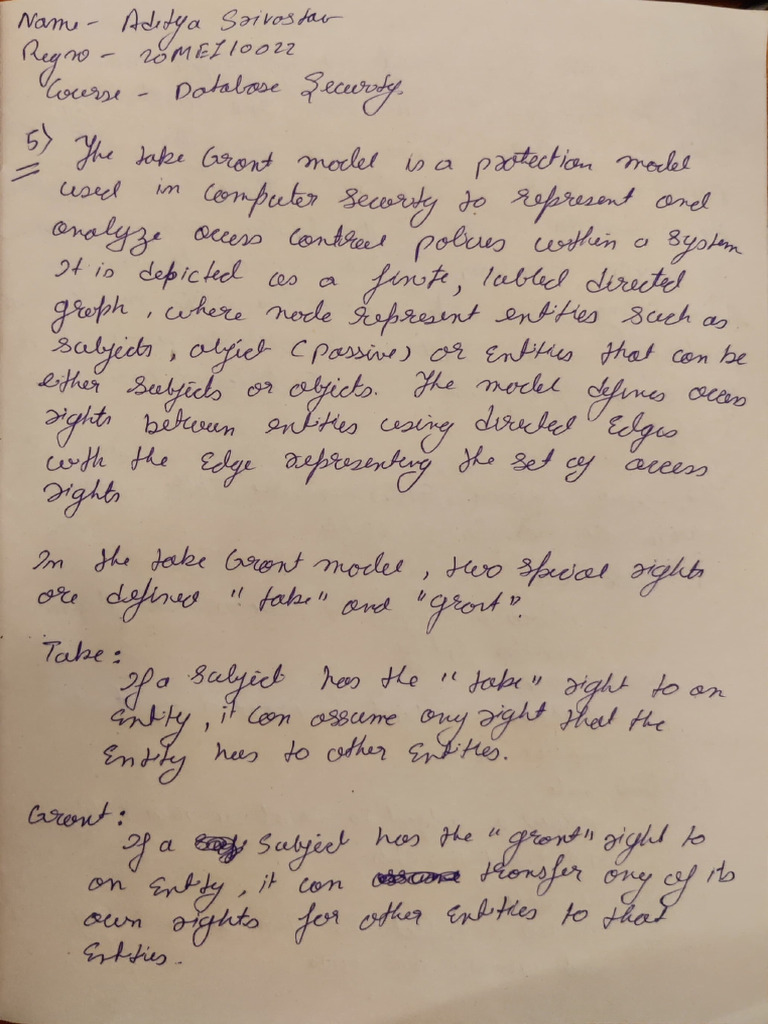 Name - Aditya Srivastav
Regno - 20MEI10022
Course - Database Security.
5) The take Grant model is a protection model
used in computer security to represent and
analyze access control policies within a system
It is depicted as a finite, labled directed
graph, where node represent entities such as
subjects, object (passive) or entities that can be
either subjects or objects. The model defines access
rights between entities using directed edges
with the edge representing the set of access
rights
In the take Grant model, two special rights
are defined "take" and "grant".
Take:
If a subject has the "take" right to an
entity, it can assume any right that the
Entity has to other Entities.
Grant:
If a subject has the "grant" right to
an entity, it can transfer any of its
own rights for other entities to that
Entities.